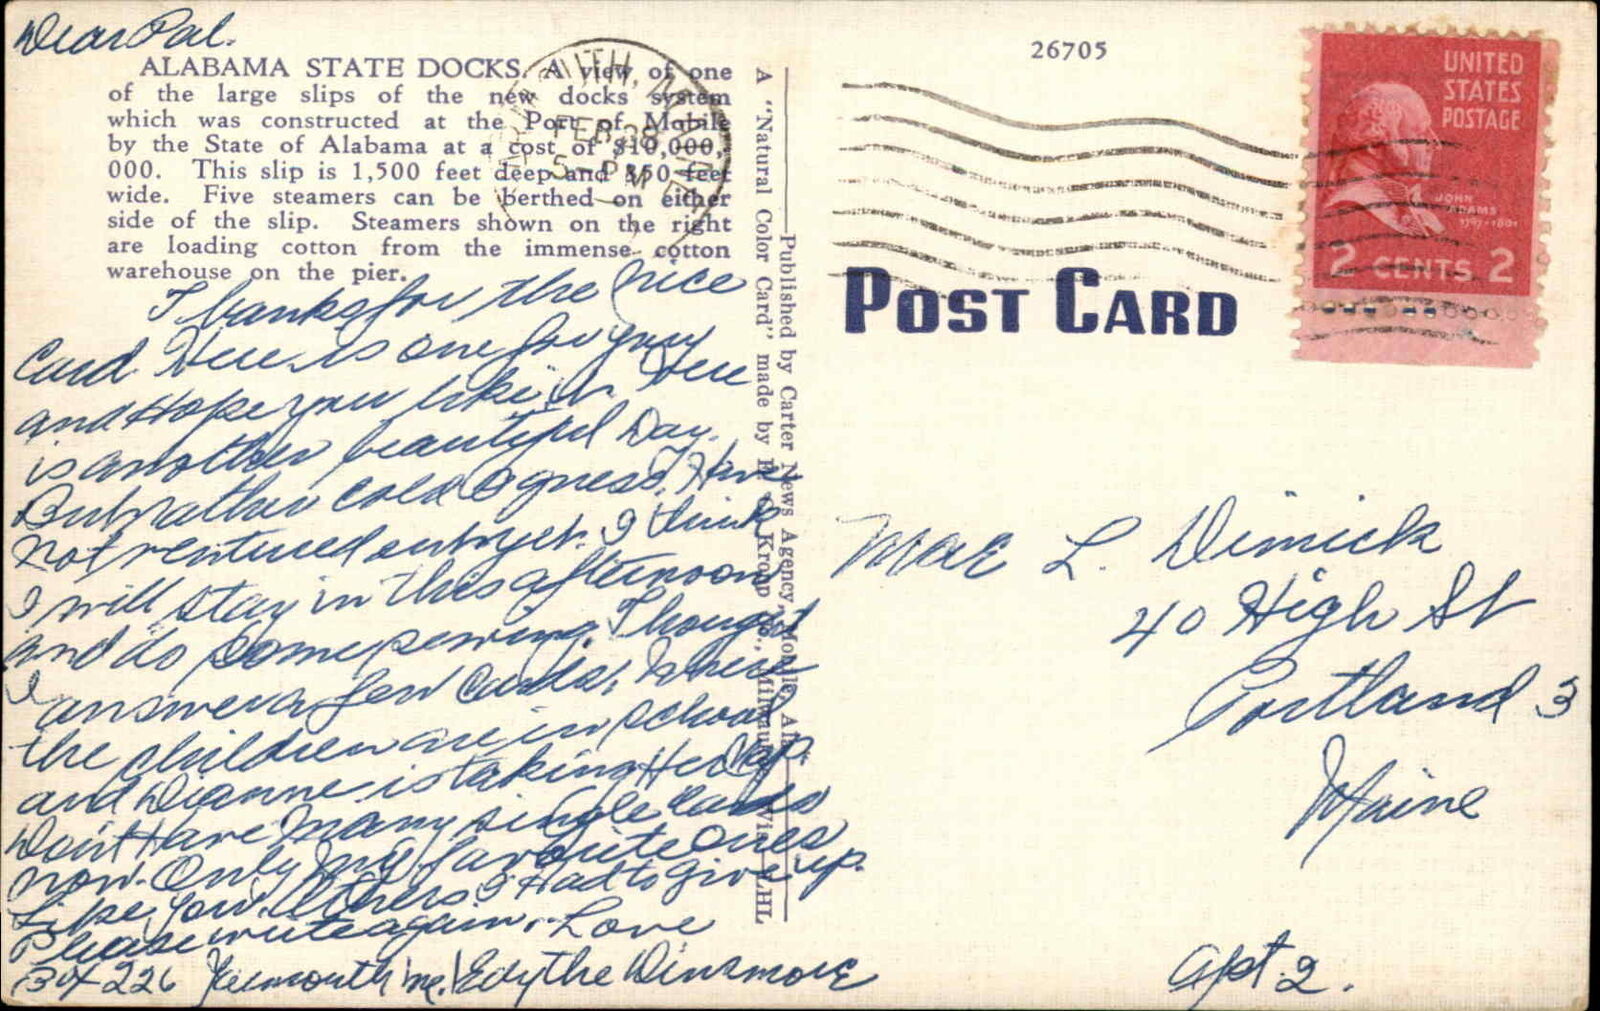 Dear Pal.
ALABAMA STATE DOCKS. A view of one
of the large slips of the new docks system
which was constructed at the Port of Mobile
by the State of Alabama at a cost of $10,000,-
000. This slip is 1,500 feet deep and 350 feet
wide. Five steamers can be berthed on either
side of the slip. Steamers shown on the right
are loading cotton from the immense cotton
warehouse on the pier.
Thanks for the nice
Card. Here is one for you
and Hope you like it. Here
is another beautiful Day.
But rather cold I guess. Have
not ventured out yet. I think
I will stay in this afternoon
and do some sewing. Thought
I answer a few Cards, where
the children are in school
and Dianne is taking Her Nap.
Don't Have many single Cards
now. Only my favorite ones
Like you. Others I Had to give up.
Please write again. Love
Bx 226 Yarmouth Me. Edythe Dinsmore
A "Natural Color Card" made by E. C. Kropp Co., Milwaukee, Wis. LHL
Published by Carter News Agency, Mobile, Ala.
FEB 28
5 - PM
26705
UNITED
STATES
POSTAGE
JOHN
ADAMS
1797-1801
2 CENTS 2
POST CARD
Mae L. Dimick
40 High St
Portland 3
Maine
Apt. 2.